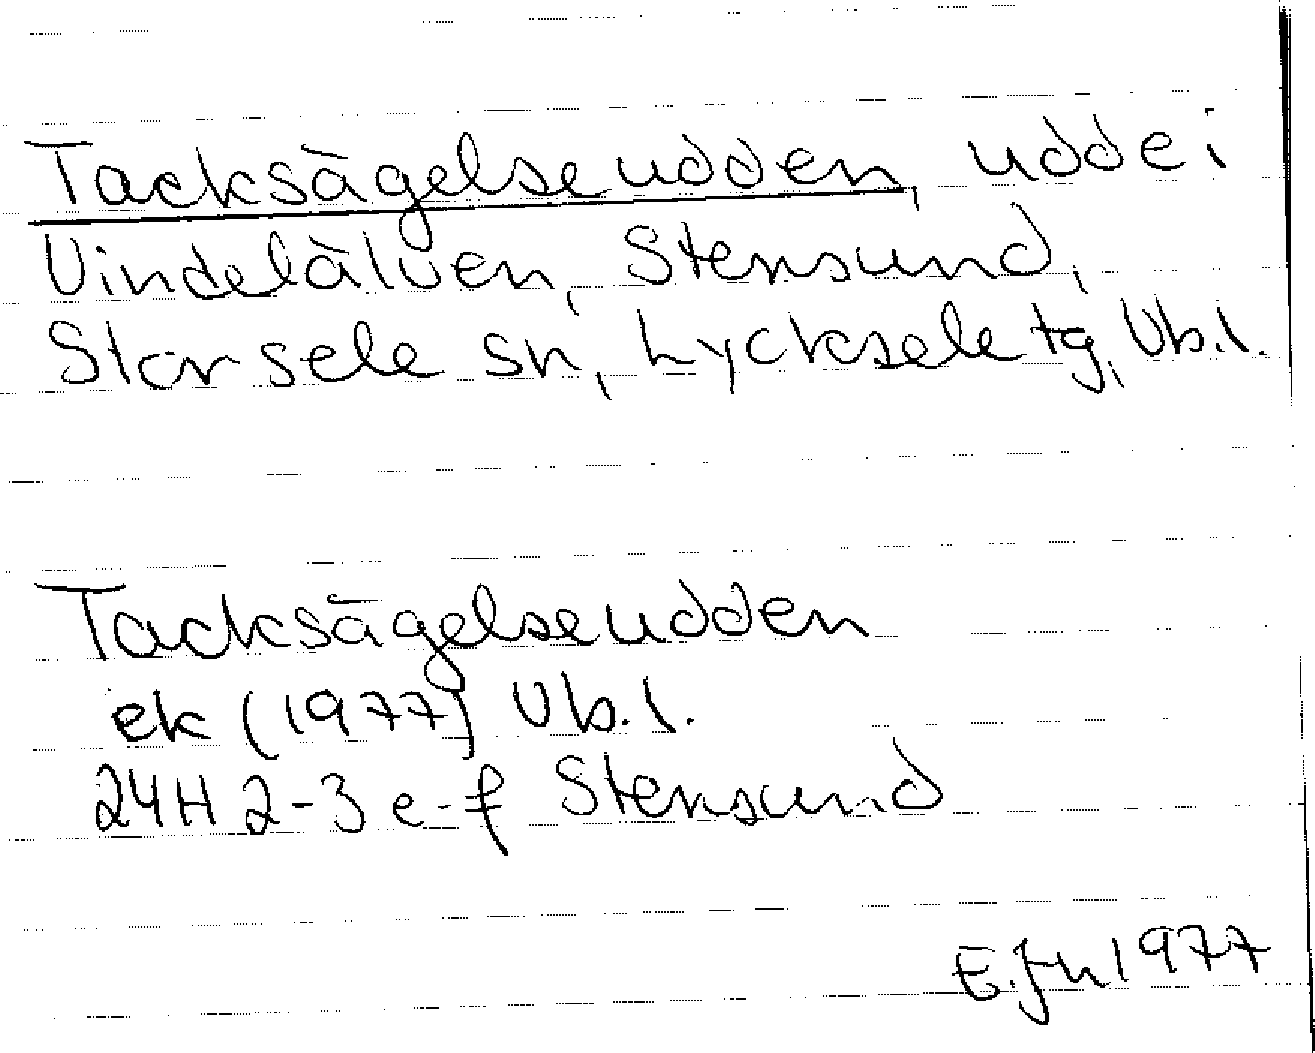 Tacksägelseudden, udde i
Vindelälven, Stensund,
Storsele sn, Lycksele tg, Vb.l.
Tacksägelseudden
ek (1977) Vb.l.
24H 2-3 e-f Stensund
E.Jn 1977